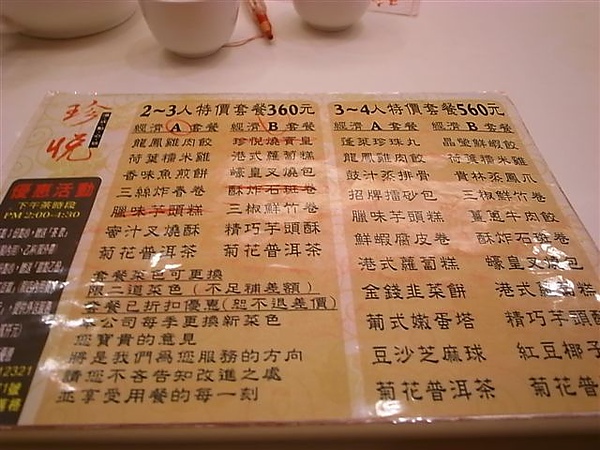 珍悅
優惠活動
下午茶時段
PM 2:00-4:30
2~3人特價套餐360元
經濟A套餐 經濟B套餐
龍鳳雞肉餃 珍悅燒賣皇
荷葉糯米雞 港式蘿蔔糕
香味魚煎餅 蠔皇叉燒包
三絲炸春卷 酥炸石斑卷
臘味芋頭糕 三椒鮮竹卷
蜜汁叉燒酥 精巧芋頭酥
菊花普洱茶 菊花普洱茶
套餐菜色可更換
限二道菜色(不足補差額)
套餐已折扣優惠(恕不退差價)
本公司每季更換新菜色
您寶貴的意見
將是我們為您服務的方向
請您不吝告知改進之處
並享受用餐的每一刻
3~4人特價套餐560元
經濟A套餐 經濟B套餐
蓬萊珍珠丸 晶瑩鮮蝦餃
龍鳳雞肉餃 荷葉糯米雞
鼓汁蒸排骨 貴林蒸鳳爪
招牌擂砂包 三椒鮮竹卷
臘味芋頭糕 薑蔥牛肉餃
鮮蝦腐皮卷 酥炸石斑卷
港式蘿蔔糕 蠔皇叉燒
金錢韭菜餅 港式蘿蔔
葡式嫩蛋塔 精巧芋頭酥
豆沙芝麻球 紅豆椰子
菊花普洱茶 菊花普洱
12321